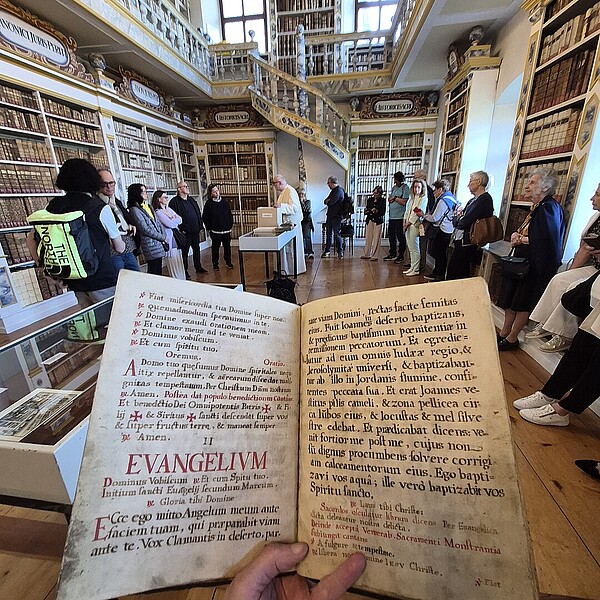 CANONICI JURIS PERITI
HISTORICI
HISTORICI
THE
NORTH
FACE
℣ Fiat misericordia tua Domine super nos.
℟ Quemadmodum speravimus in te.
℣ Domine exaudi orationem meam.
℟ Et clamor meus ad te veniat.
℣ Dominus vobiscum.
℟ Et cum spiritu tuo.
Oremus. Oratio.
A Domo tua quæsumus Domine spiritales nequi
tiæ repellantur, & aërearum discedat malig-
gnitas tempestatum. Per Christum Dñm nostrum
℟ Amen. Postea dat populo benedictionem Cantans
Et benedictio Dei Omnipotentis Patris ✠ & Fi
lij ✠ & Spiritus ✠ Sancti descendat super vos
& super fructus terræ, & maneat semper
℟ Amen.
II
EVANGELIVM
Dominus Vobiscum ℟ Et cum Spiritu tuo.
Initium sancti Evangelij secundum Marcum.
℟ Gloria tibi Domine
ECce ego mitto Angelum meum ante
faciem tuam, qui præparabit viam
ante te. Vox Clamantis in deserto, par,
rate viam Domini, rectas facite semitas
eius. Fuit Ioannes in deserto baptizans,
& prædicans baptismum pœnitentiæ in
remissionem peccatorum. Et egredie-
batur ad eum omnis Iudææ regio, &
Ierosolymitæ universi, & baptizaban-
tur ab illo in Jordanis flumine, confi-
tentes peccata sua. Et erat Joannes ve-
stitus pilis cameli, & zona pellicea cir
ca lumbos eius, & locustas & mel silve
stre edebat. Et prædicabat dicens: ve-
nit fortior me post me, cujus non
sū dignus procumbens solvere corrigi
am calceamentorum eius. Ego bapti-
zavi vos aquâ; ille verò baptizabit vos
Spiritu sancto,
℟ Laus tibi Christe:
Sacerdos osculatur librum dicens Per Evangelica
dicta deleantur nostra delicta.
Deinde accepta Venerab. Sacramenti Monstrantia
subiungit cantans
℣ A fulgure & tempestate.
℟ Libera nos Domine Iesu Christe.
℣ Fiat